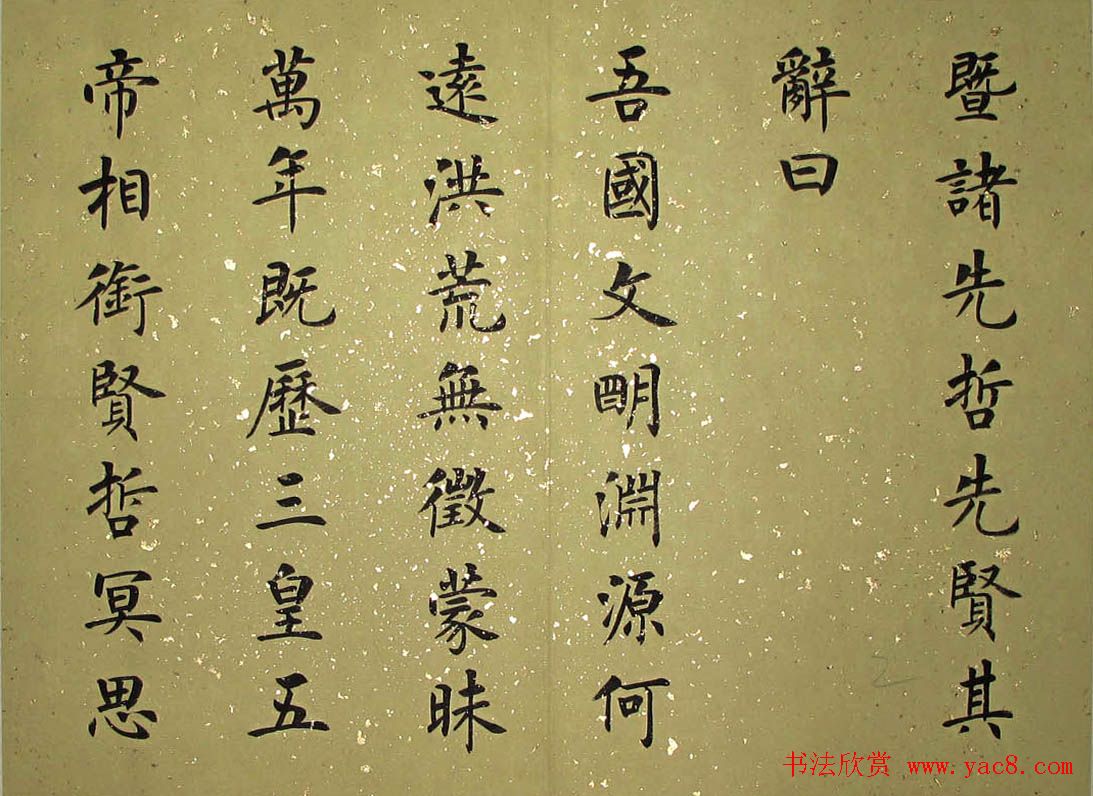 暨諸先哲先賢其
辭曰
吾國文明淵源何
遠洪荒無徵蒙昧
萬年既歷三皇五
帝相銜賢哲冥思
书法欣赏 www.yac8.com